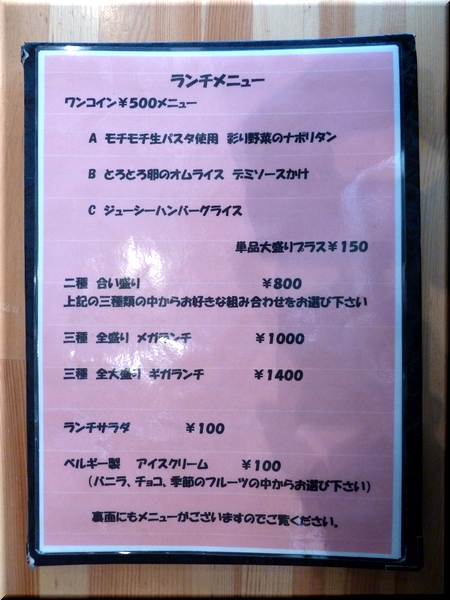 ランチメニュー
ワンコイン￥500メニュー
A モチモチ生パスタ使用 彩り野菜のナポリタン
B とろとろ卵のオムライス デミソースかけ
C ジューシーハンバーグライス
単品大盛りプラス￥150
二種 合い盛り ￥800
上記の三種類の中からお好きな組み合わせをお選び下さい
三種 全盛り メガランチ ￥1000
三種 全大盛り ギガランチ ￥1400
ランチサラダ ￥100
ベルギー製 アイスクリーム ￥100
（バニラ、チョコ、季節のフルーツの中からお選び下さい）
裏面にもメニューがございますのでご覧ください。